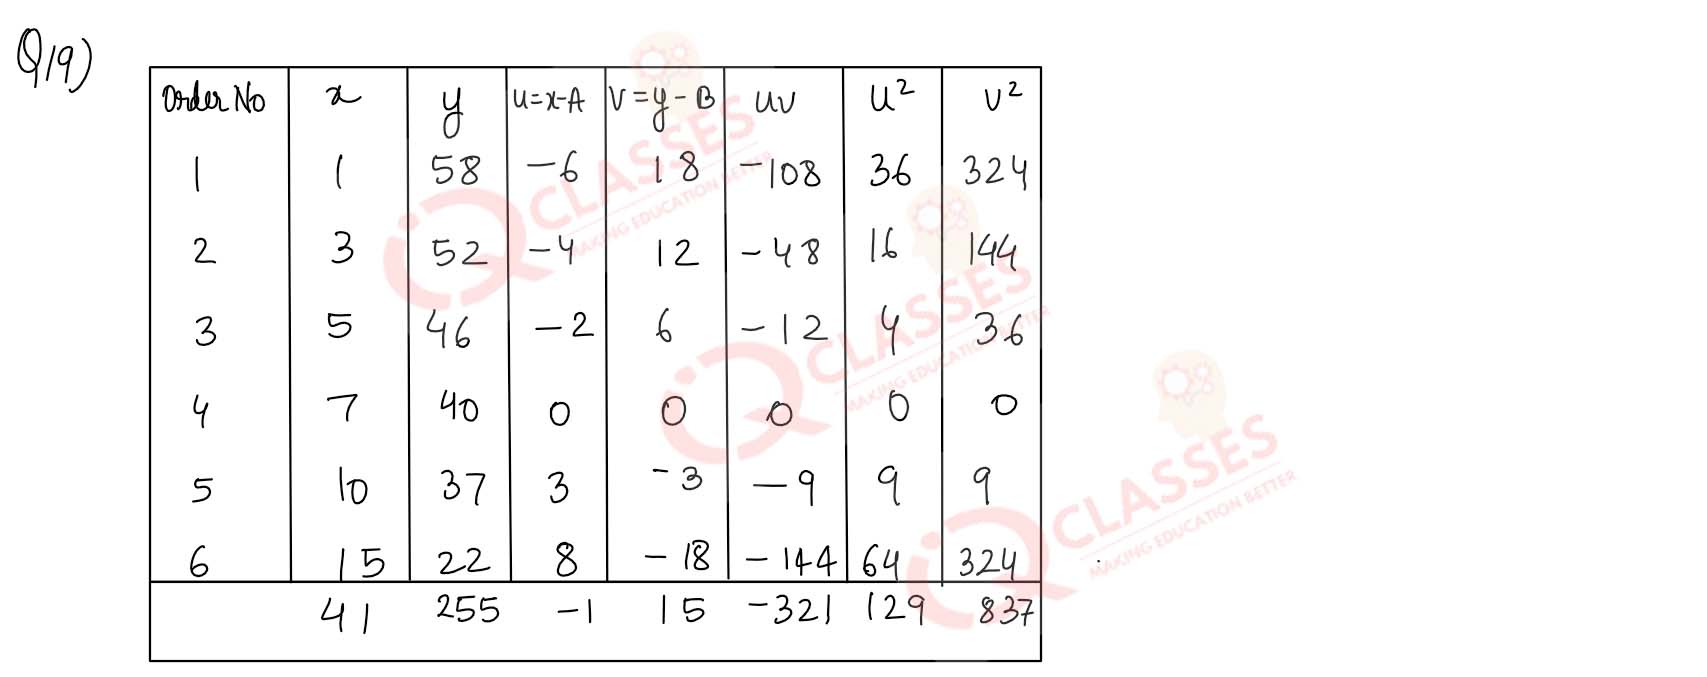 Q19)
Order No x y u=x-A v=y-B uv u² v²
1 1 58 -6 18 -108 36 324
2 3 52 -4 12 -48 16 144
3 5 46 -2 6 -12 4 36
4 7 40 0 0 0 0 0
5 10 37 3 -3 -9 9 9
6 15 22 8 -18 -144 64 324
41 255 -1 15 -321 129 837
CLASSES
MAKING EDUCATION BETTER
CLASSES
MAKING EDUCATION BETTER
CLASSES
MAKING EDUCATION BETTER